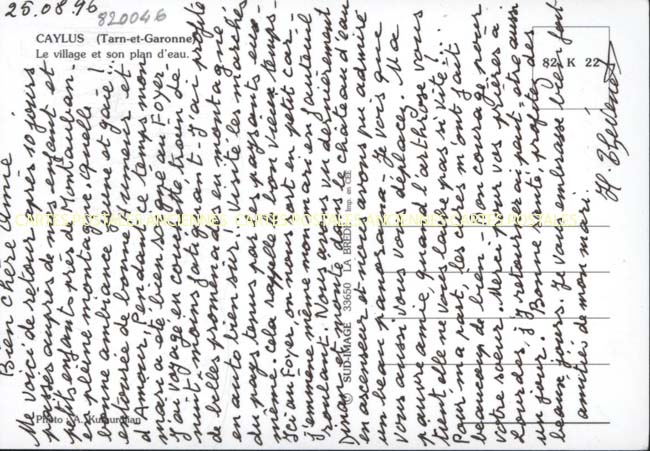 25.08.96
820046
CAYLUS (Tarn-et-Garonne)
Le village et son plan d'eau.
82 K 22
Bien chère Amie
Me voici de retour après 10 jours
passés auprès de mes enfant et
petits enfants près Montauban.
en pleine montagne. Quelle
bonne ambiance, jeune et gaie!
entourée de bonne humeur et
d'Amour. Pendant ce temps mon
mari a été bien soigné au Foyer.
J'ai voyagé en couchette train de
nuit, moins fatigant. J'ai profité
de belles promenades en montagne
en auto bien sûr. Visité les marchés
du pays tenus par les paysants eux-
même. cela rappelle le bon vieux temps.
Ici en Foyer on nous sort en petit car.
j'emmène même mon mari en fauteuil
roulant. Nous avons eu dernièrement
Dinan, monté dans un château d'eau
en ascenseur et nous avons pu admiré
un beau panorama. Je vois que
vous aussi vous vous déplacez. Ma
pauvre amie, quand l'arthrose vous
tient elle ne vous laisse pas si vite!..
Pour ma part, les cures m'ont fait
beaucoup de bien. bon courage pour
votre sœur. Merci pour vos prières à
Lourdes, j'y retournerai peut-être aussi
un jour. Bonne santé, profitez des
beaux jours. Je vous embrasse bien fort
amitiés de mon mari
Photo : A.
© SUD-IMAGE 33650 LA BREDE Imp. en CEE
CARTES POSTALES ANCIENNES CARTES POSTALES ANCIENNES CARTES POSTALES ANCIENNES